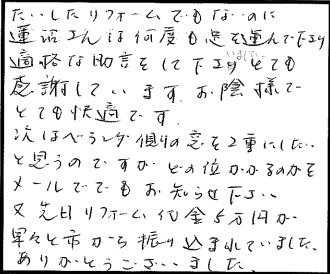 たいしたリフォームでもないのに
運沼さんは何度も足を運んで下さり
適格な助言をして下さりとても
いました
感謝しています。お陰様で
とても快適です。
次はベランダ側の窓を2重にした…
と思うのですが どの位かかるのかを
メールででもお知らせ下さい
又 先日リフォーム代金5万円が
早々と市から振り込まれていました。
ありがとうございました。